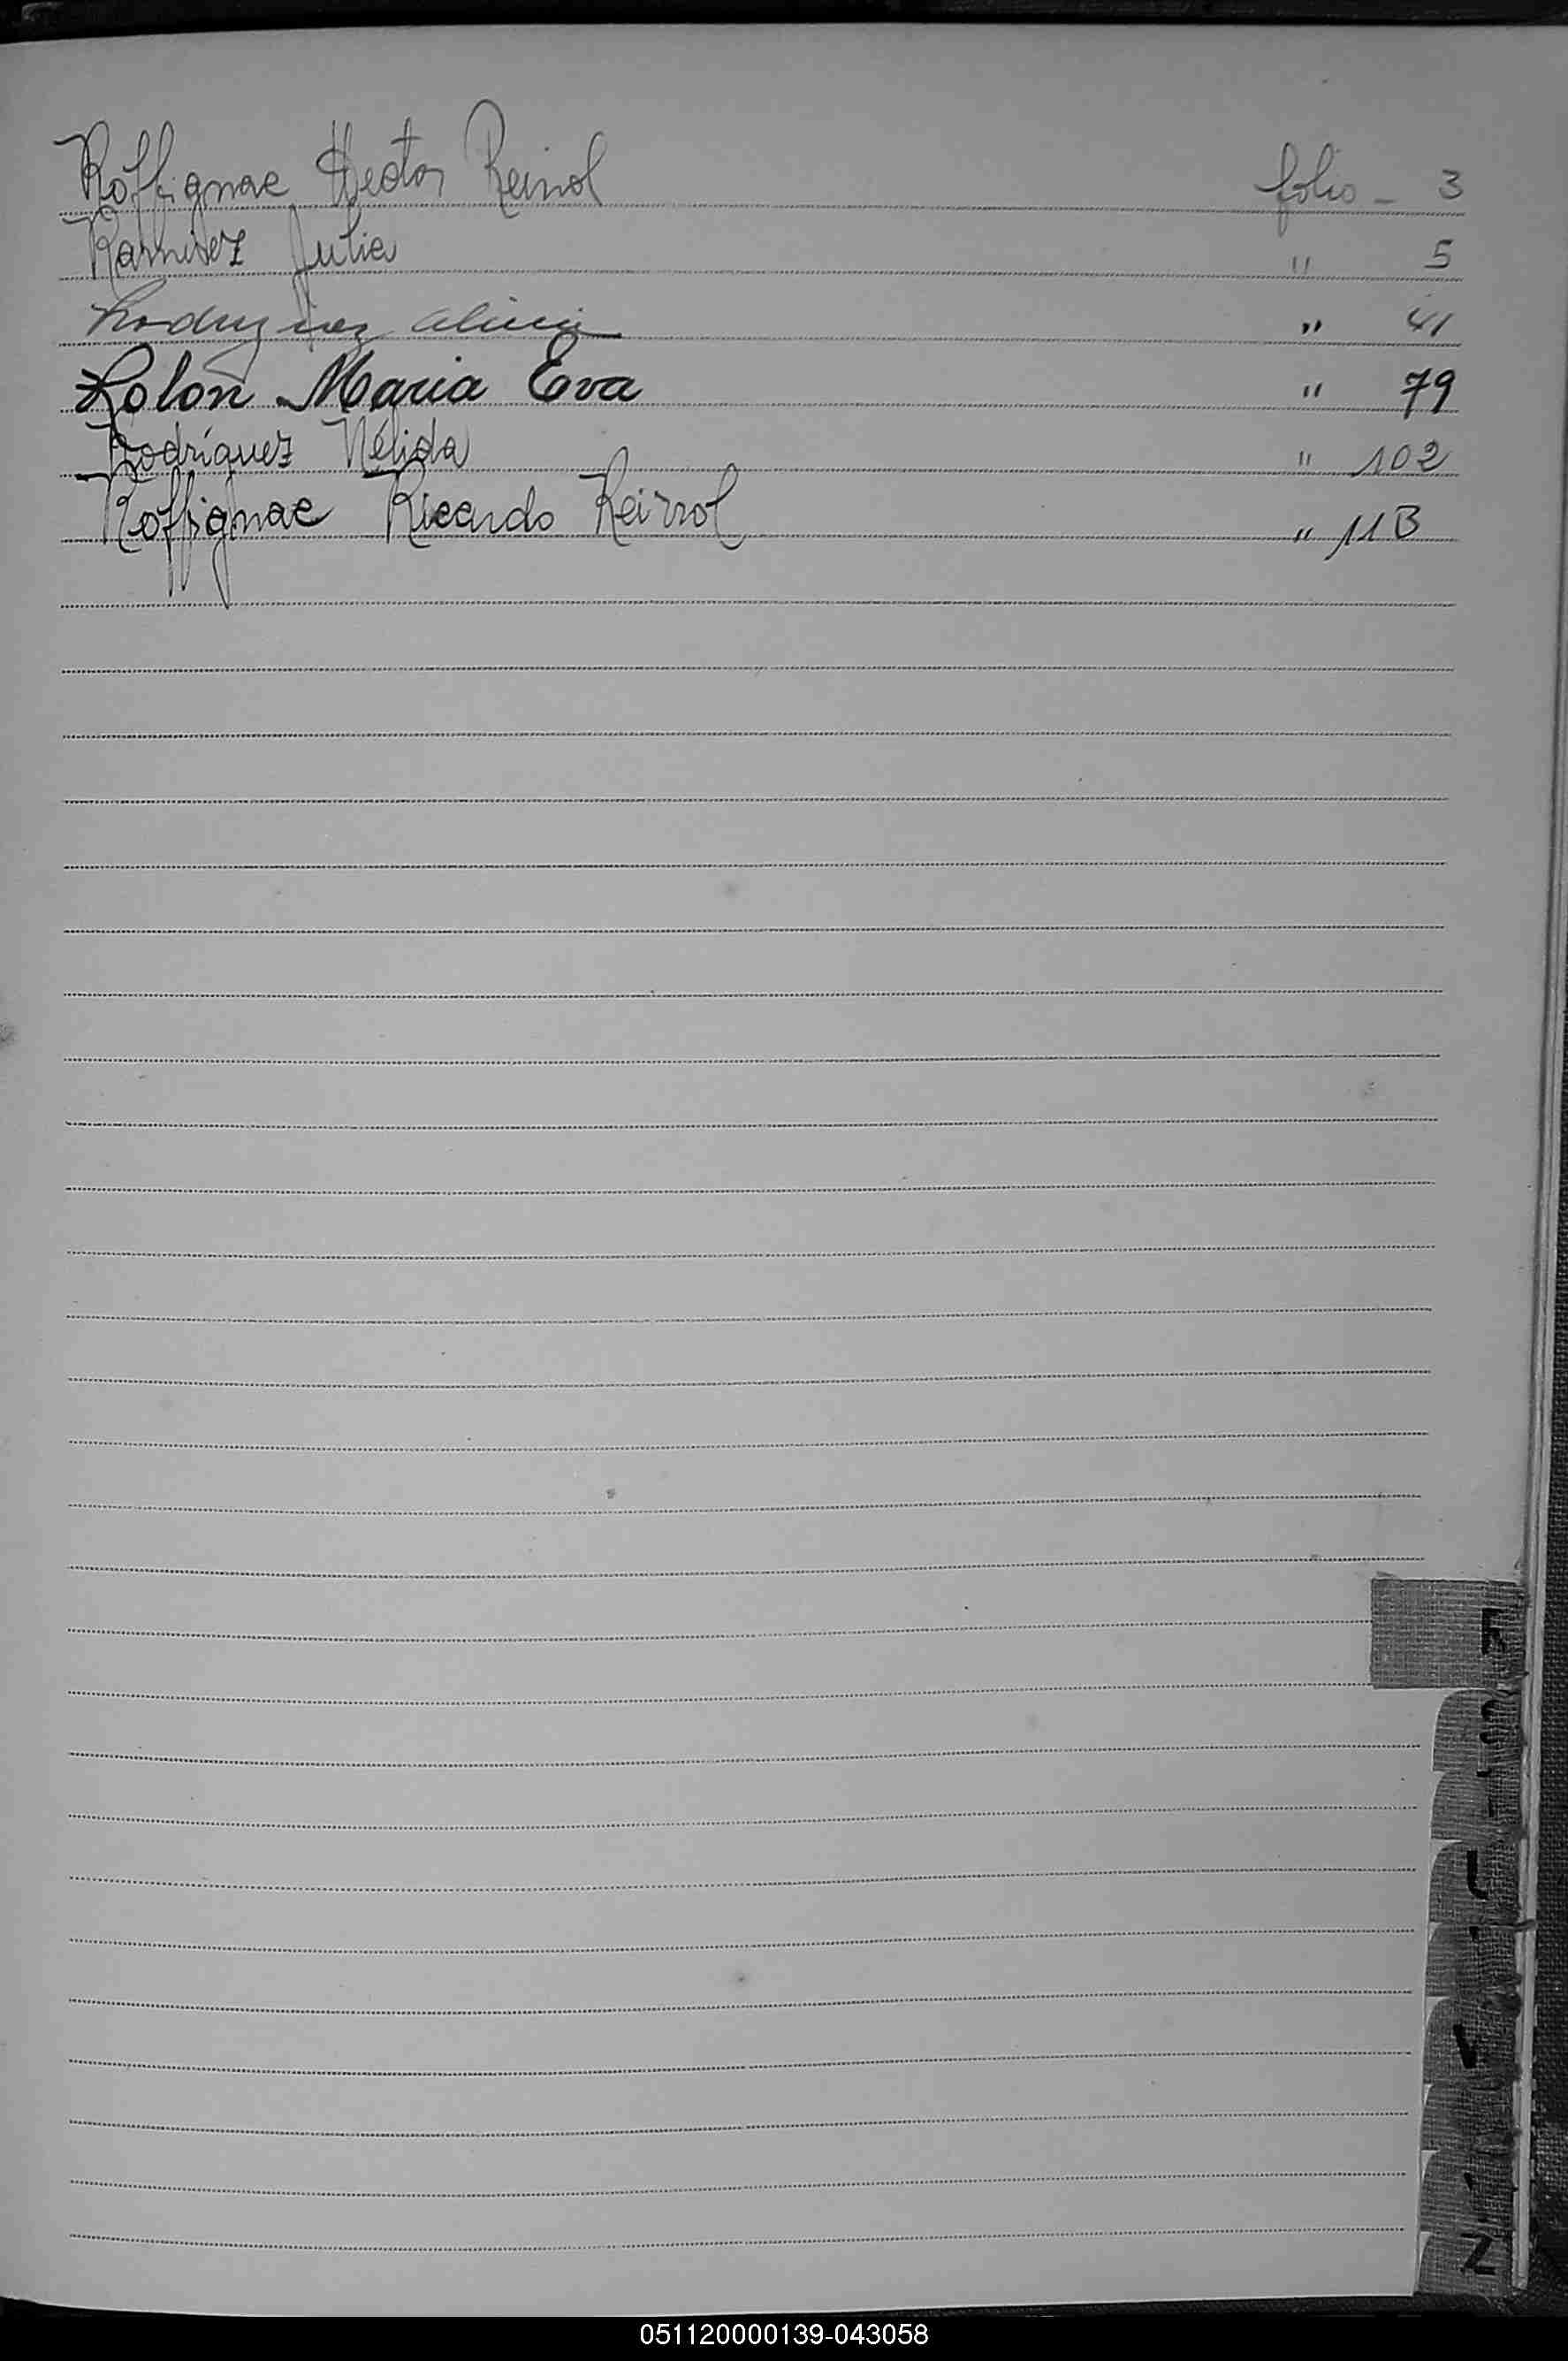 Roffignac Hector Reinol folio - 3
Ramirez Julia " 5
Rodriguez Alicia " 41
Rolon Maria Eva " 79
Rodríguez Nélida " 102
Roffignac Ricardo Reinol " 113
R
Z
051120000139-043058